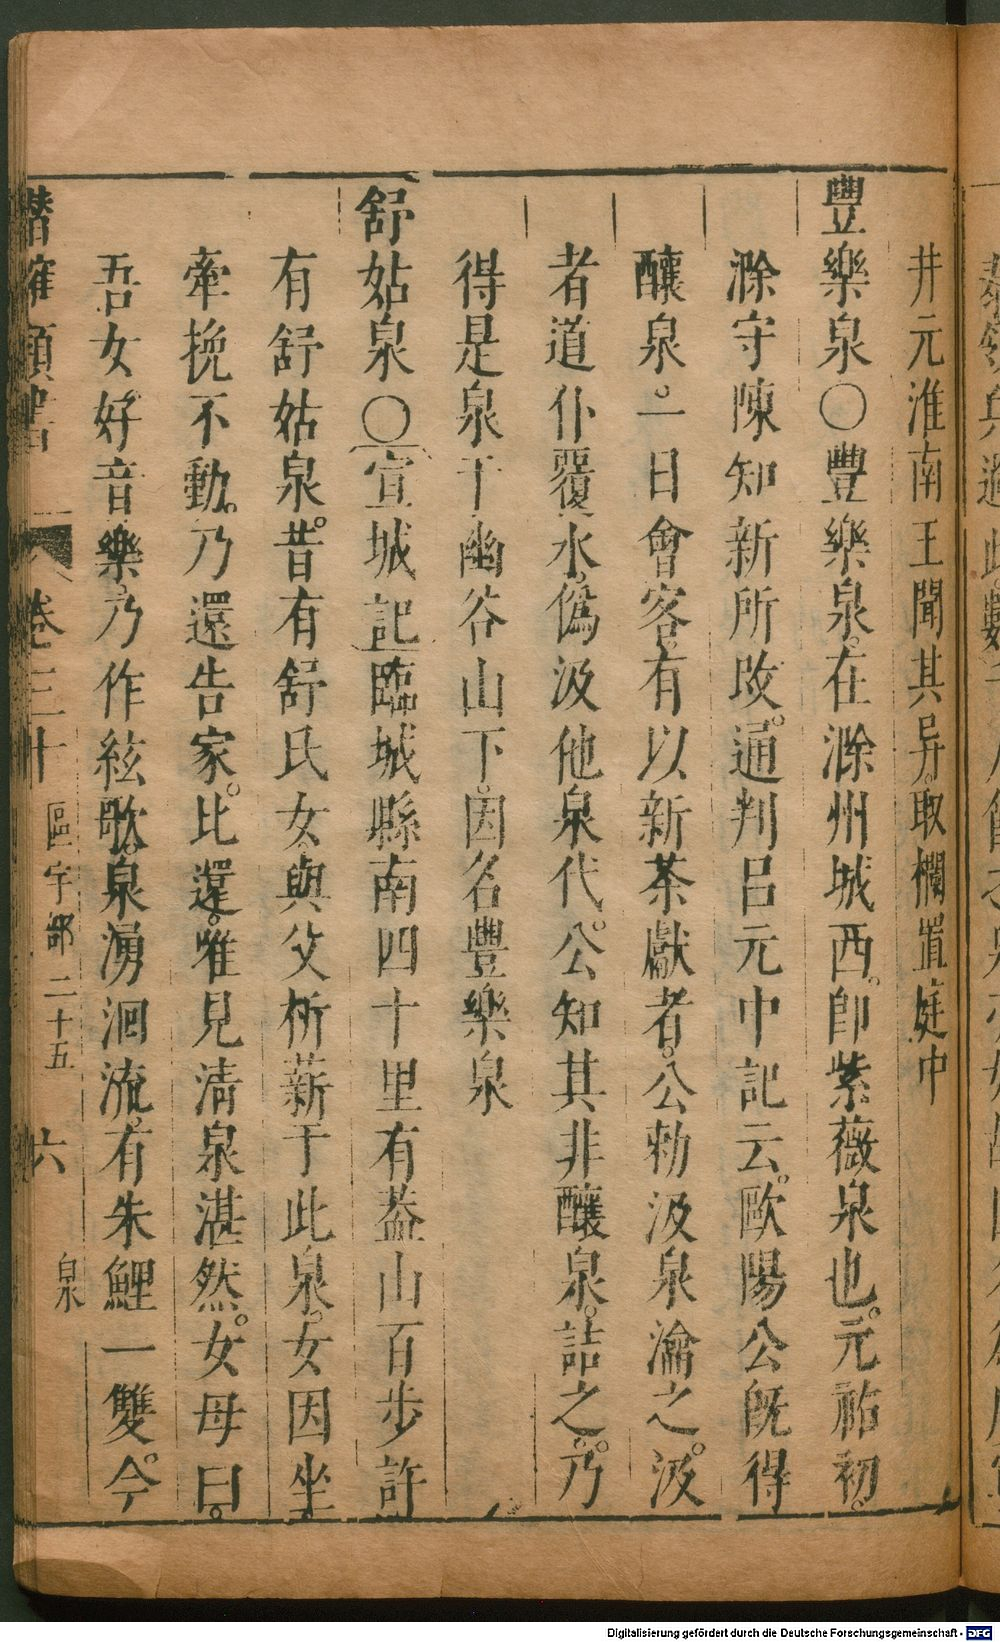 井元淮南王聞其异。取欄置庭中
豐樂泉○豐樂泉。在滁州城西。卽紫薇泉也。元祐初。
滁守陳知新所改。通判吕元中記云。歐陽公旣得
釀泉。一日會客。有以新茶獻者。公勑汲泉瀹之。汲
者道仆覆水。僞汲他泉代。公知其非釀泉。詰之。乃
得是泉于幽谷山下。因名豐樂泉
舒姑泉○宣城記臨城縣南四十里有葢山百步許
有舒姑泉。昔有舒氏女。與父析薪于此泉。女因坐。
牽挽不動。乃還告家。比還。唯見清泉湛然。女母曰。
吾女好音樂。乃作絃歌。泉湧洄流。有朱鯉一雙。今
潛確類書 卷三十 區宇部二十五 六 泉
Digitalisierung gefördert durch die Deutsche Forschungsgemeinschaft - DFG